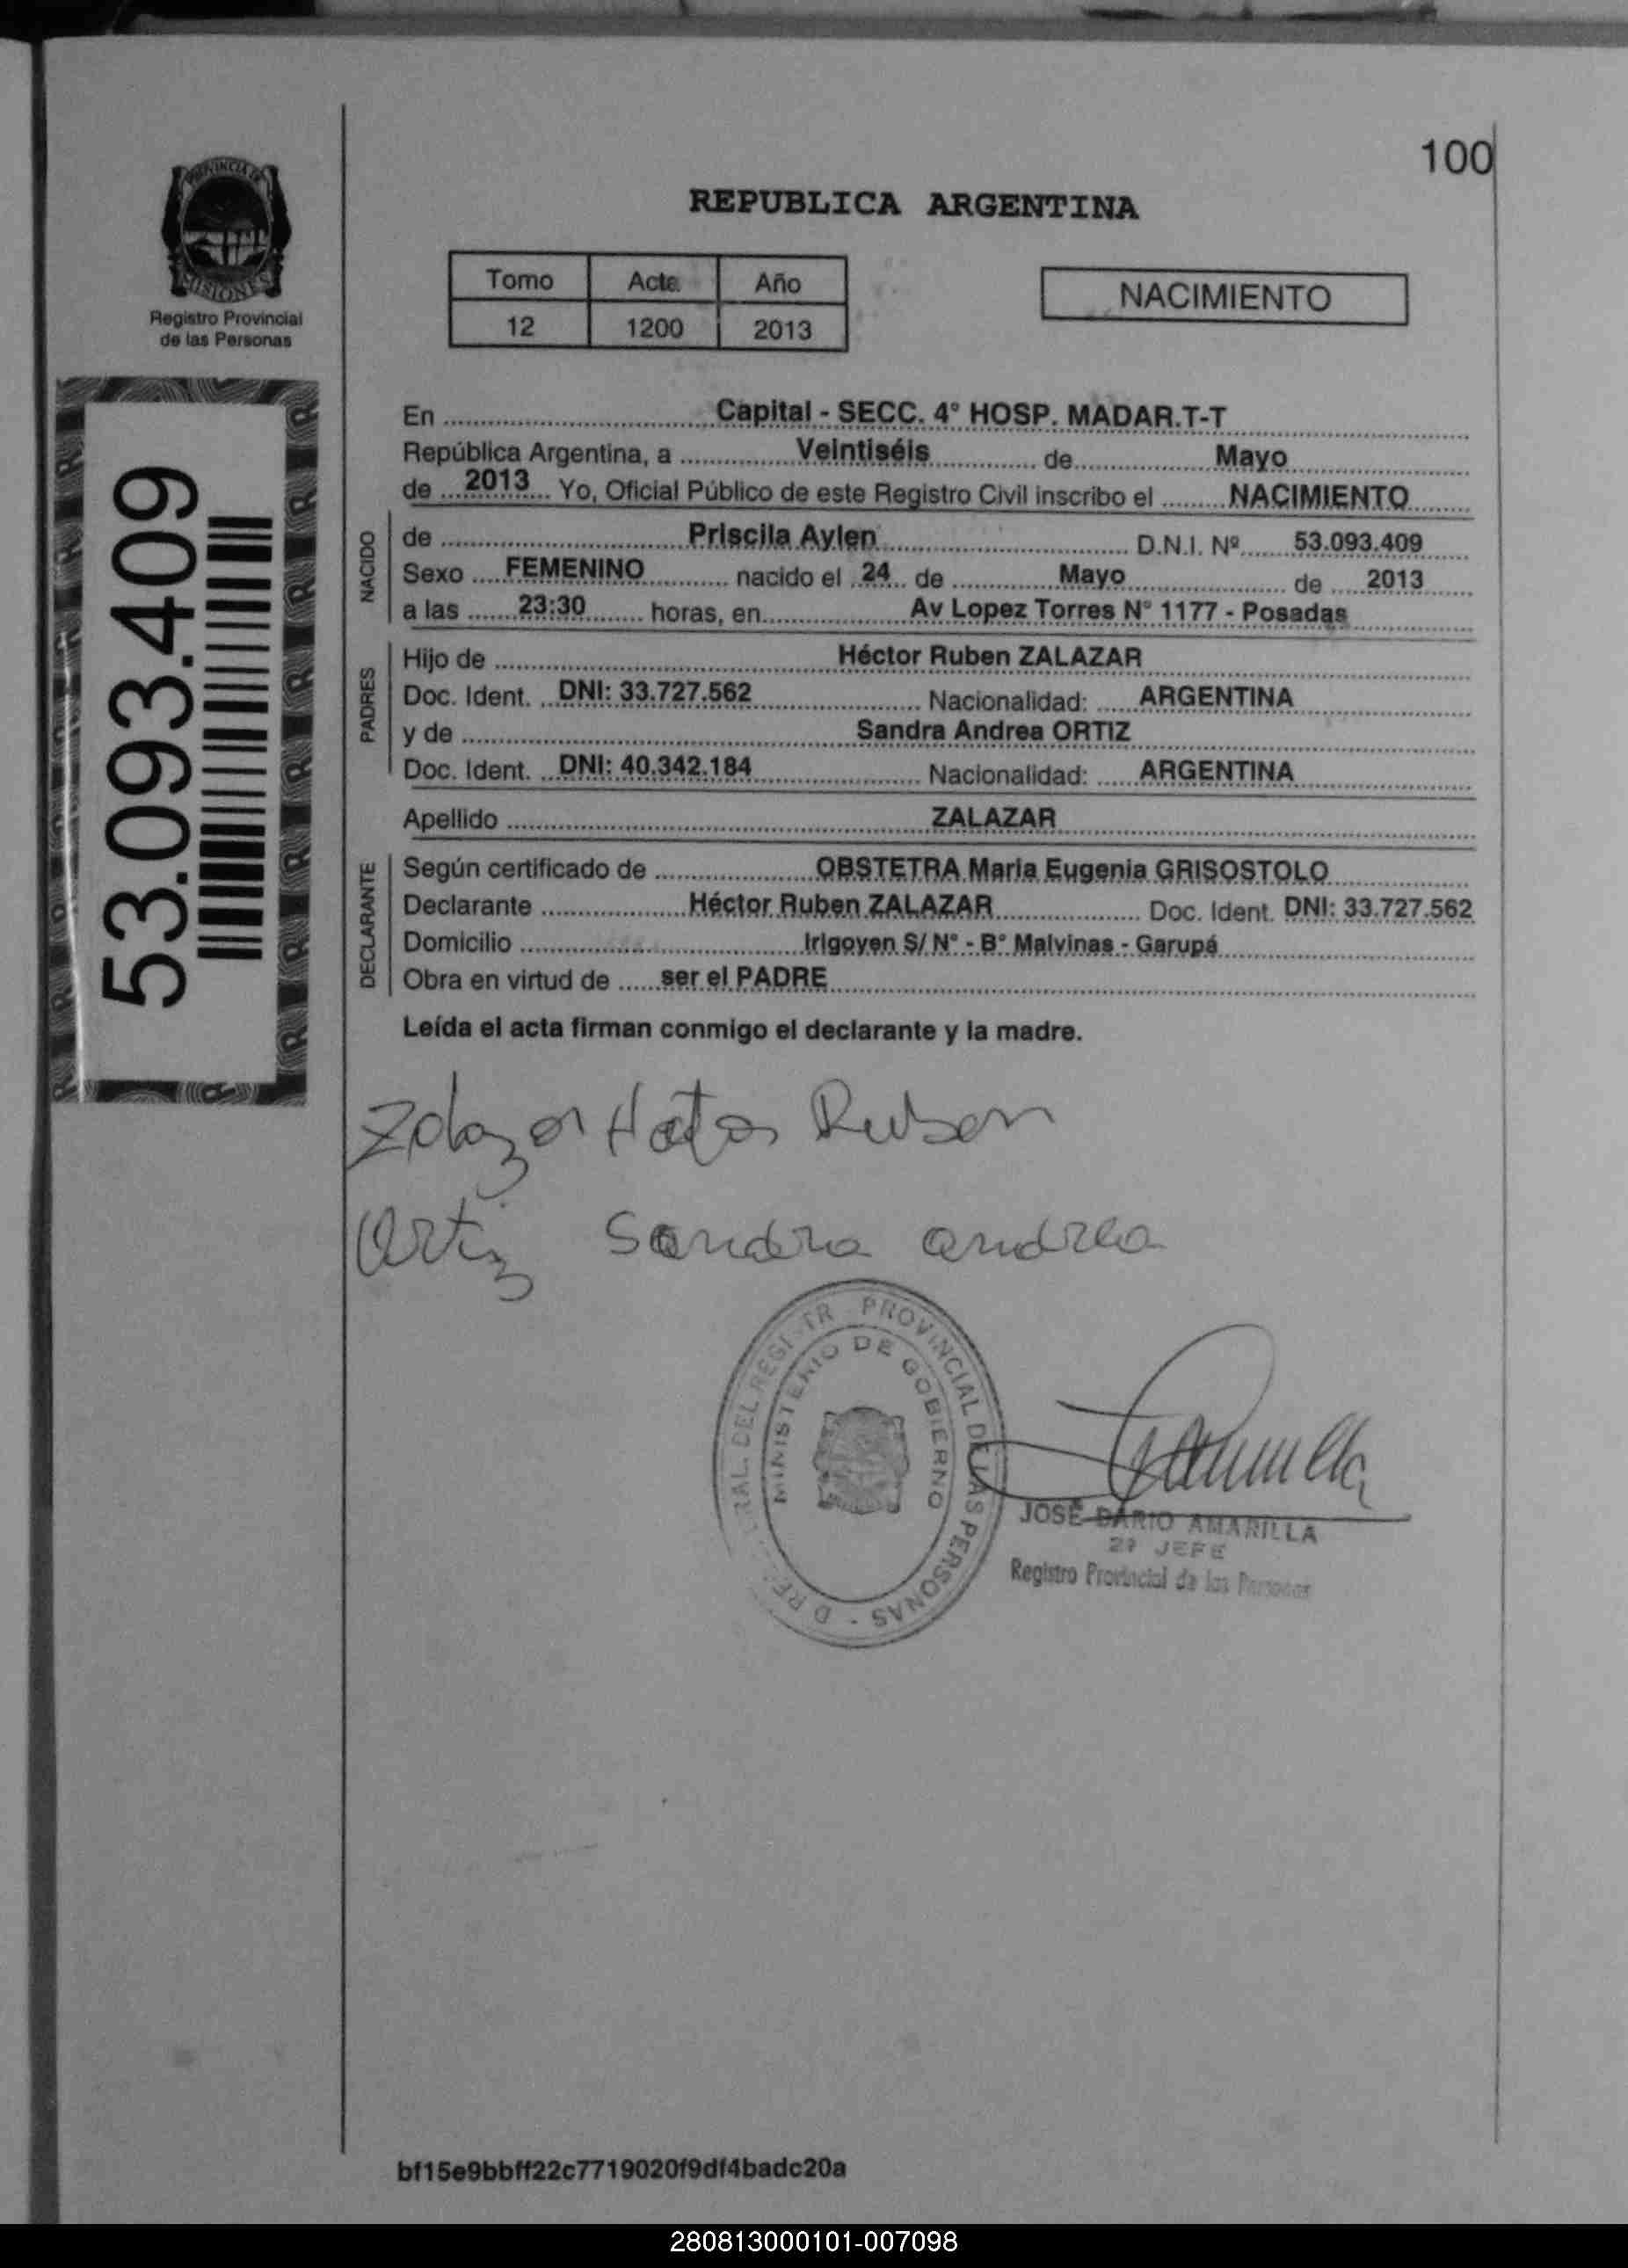 100
REPUBLICA ARGENTINA
PROVINCIA DE
MISIONES
Registro Provincial
de las Personas
Tomo Acta Año
12 1200 2013
NACIMIENTO
53.093.409
En Capital - SECC. 4° HOSP. MADAR.T-T
República Argentina, a Veintiséis de Mayo
de 2013 Yo, Oficial Público de este Registro Civil inscribo el NACIMIENTO
NACIDO
de Priscila Aylen D.N.I. Nº 53.093.409
Sexo FEMENINO nacido el 24 de Mayo de 2013
a las 23:30 horas, en Av Lopez Torres N° 1177 - Posadas
PADRES
Hijo de Héctor Ruben ZALAZAR
Doc. Ident. DNI: 33.727.562 Nacionalidad: ARGENTINA
y de Sandra Andrea ORTIZ
Doc. Ident. DNI: 40.342.184 Nacionalidad: ARGENTINA
Apellido ZALAZAR
DECLARANTE
Según certificado de OBSTETRA Maria Eugenia GRISOSTOLO
Declarante Héctor Ruben ZALAZAR Doc. Ident. DNI: 33.727.562
Domicilio Irigoyen S/ N° - B° Malvinas - Garupá
Obra en virtud de ser el PADRE
Leída el acta firman conmigo el declarante y la madre.
Zalazar Ruben
Ortiz Sandra andrea
PROVINCIAL DE LAS PERSONAS
MINISTERIO DE GOBIERNO
JOSÉ DARIO AMARILLA
2º JEFE
Registro Provincial de las Personas
bf15e9bbff22c7719020f9df4badc20a
280813000101-007098